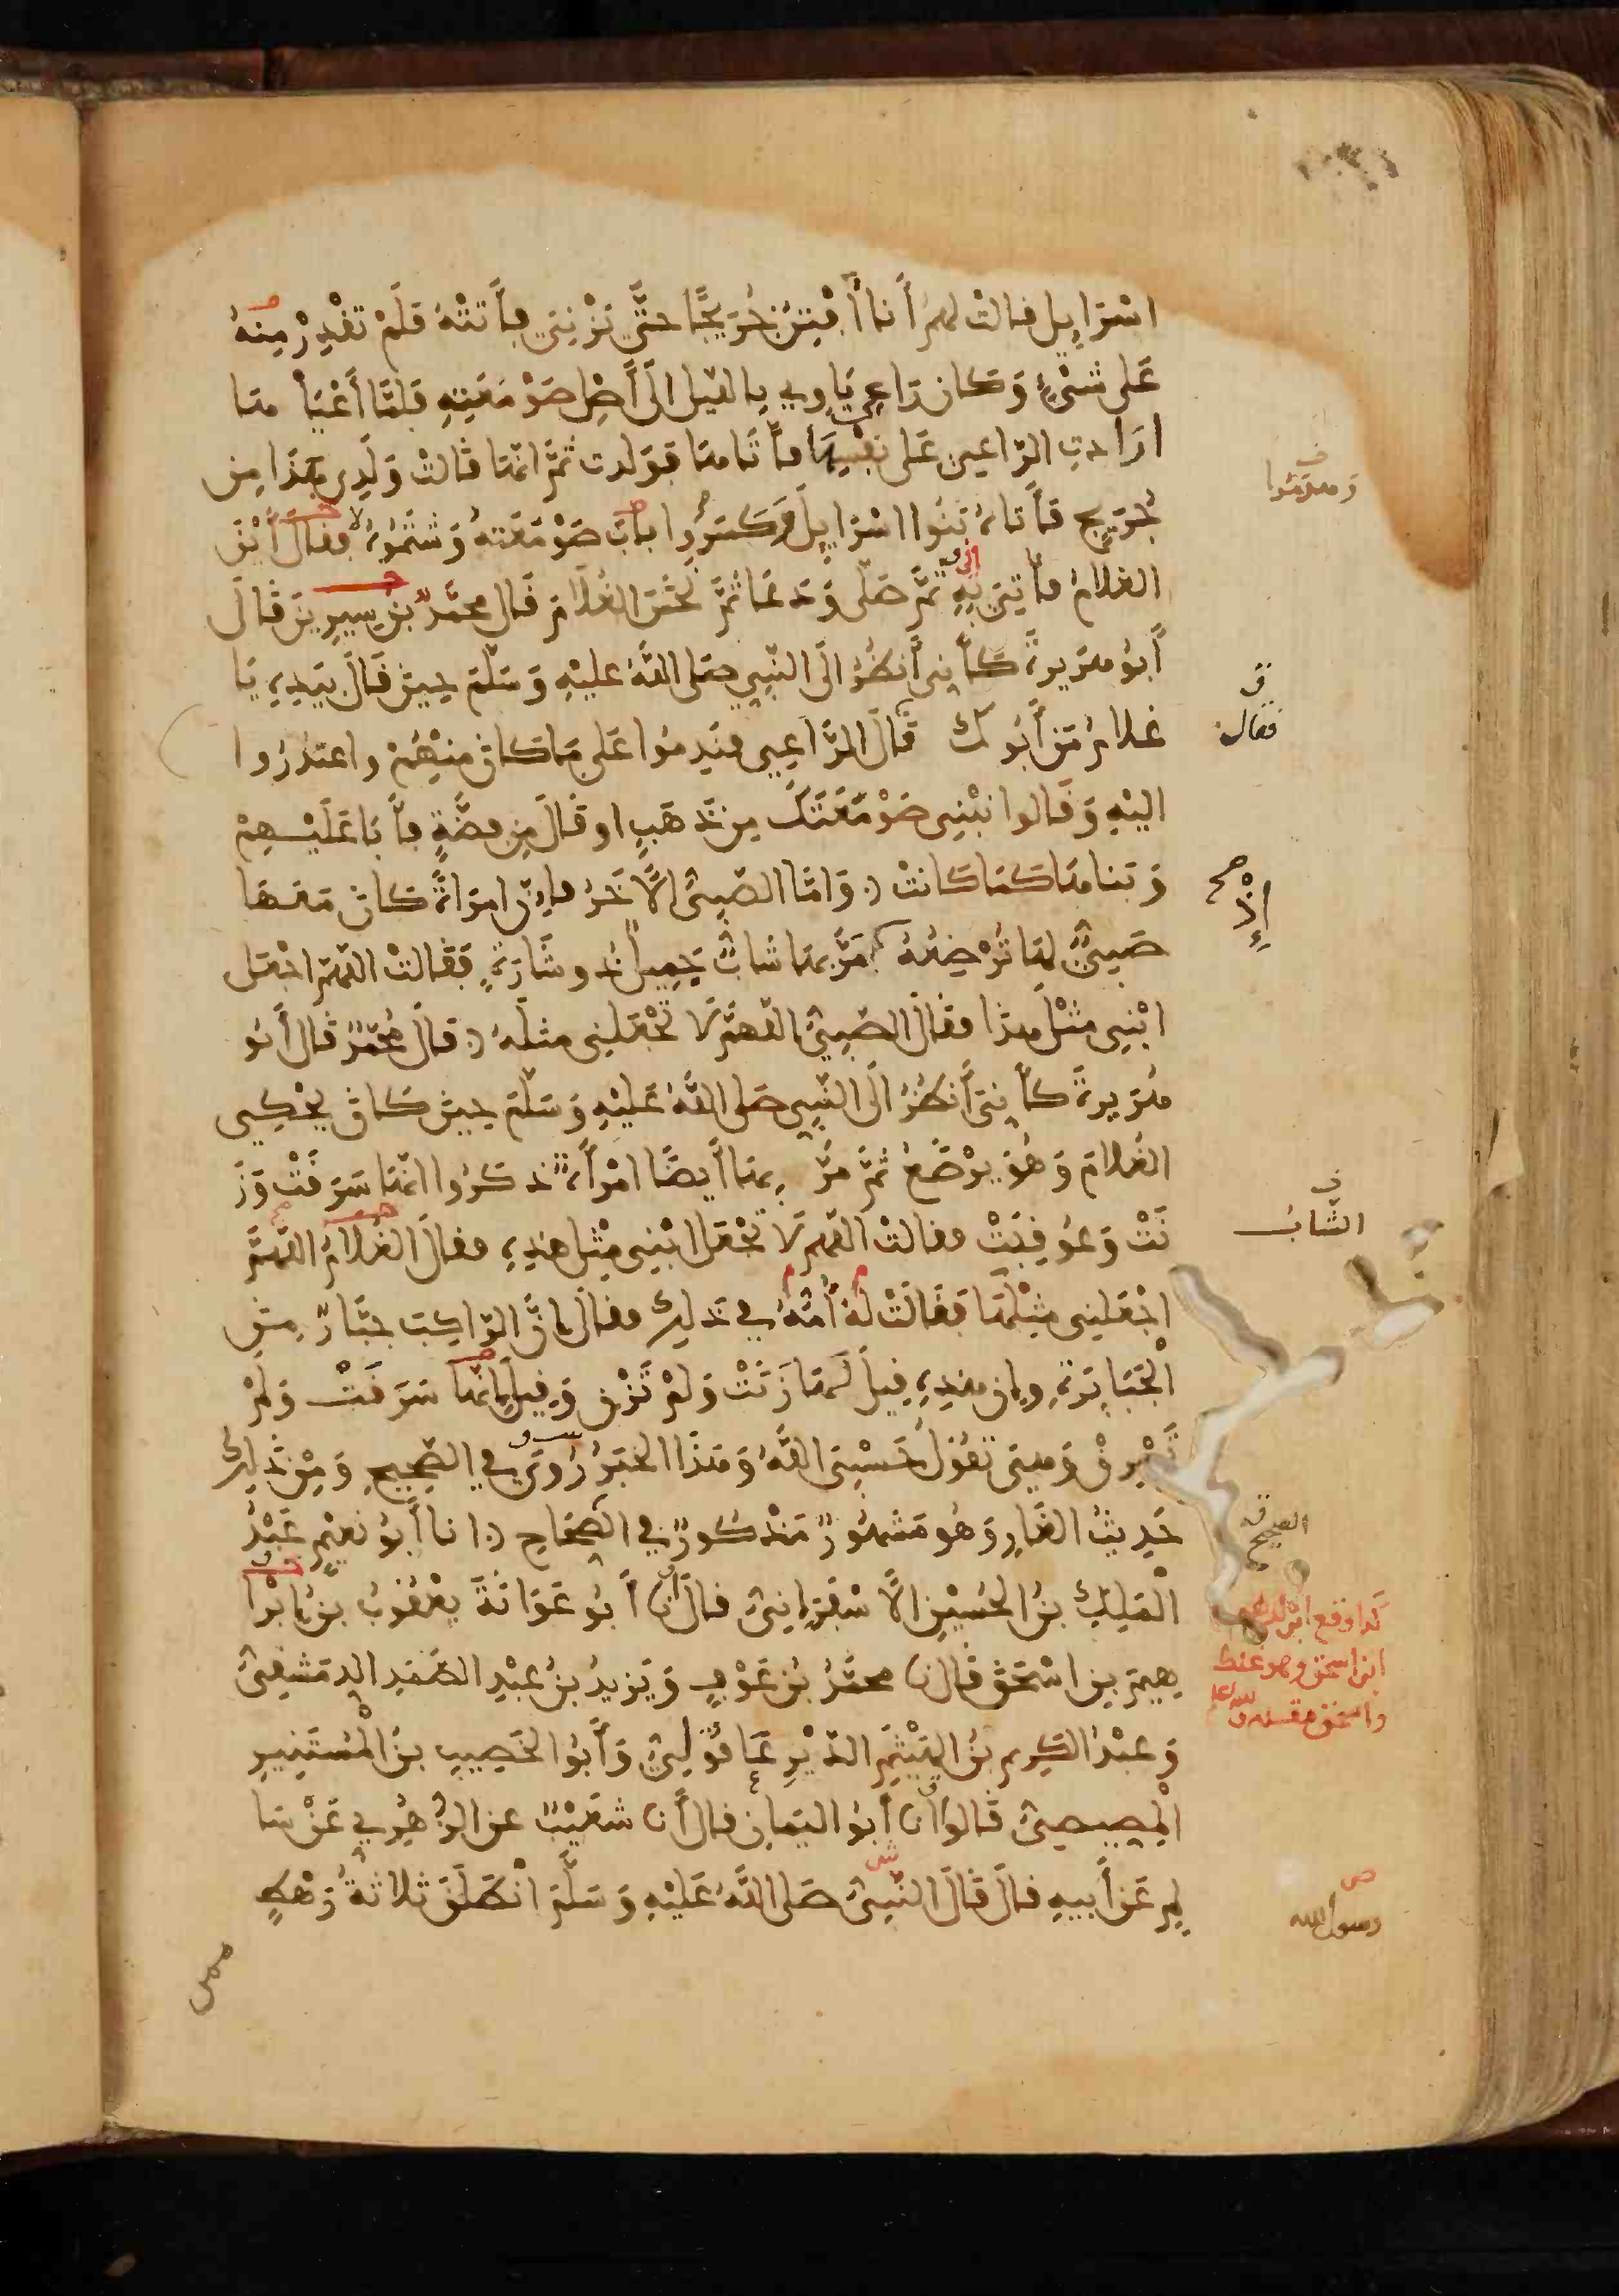 اسْرَايِيل فقالتْ لهم أَنا أَفْتِنُ جُرَيْجًا حتَّى يَزْنِيَ فأَتتْهُ فَلَمْ تقْدِرْ مِنهُ
عَلى شىْءٍ وَكان رَاعِي يَاوِي بالليل الَى أَصْلِ صَوْمَعَتِهِ فَلَمَّا أَعْيَاهَا
ارَادتِ الرّاعِيَ عَلى نَفْسِهَا فأَتَاهَا فَوَلَدت ثمَّ انهَا قالتْ وَلَدِي هَذا مِن
جُرَيج فأَتاهُ بَنُوا اسْرَايِيلَ وَكَسَرُوا بابَ صَوْمَعَتهُ وَشَتَمُوهُ فقالَ أَيْنَ
الغلامُ فأُتِيَ بِهِ ثمَّ صَلّى وَدَعَا ثمَّ نَخَسَ الغُلَامَ قَال محمّدُ بنُ سِيرِينَ قَالَ
أَبوُ هرَيرةَ كأَنِي أَنظُرُ الَى النّبِيِ صَلى اللَّهُ عليْهِ وَسَلّمَ حِينَ قَالَ بيَدِهِ يَا
غلامُ مَن أَبُوكَ قَالَ الرَّاعِي فنَدِمُوا عَلى مَا كانَ مِنْهُمْ واعتذرُوا
اليْهِ وَقَالوا نبْنِي صَوْمَعَتَكَ مِن ذَهَبٍ او قَالَ مِن فِضَّةٍ فأَبَا عَلَيْهِمْ
وَبَنَاهَا كَمَا كَانتْ وَامَّا الصّبِيُّ الآخَرُ فإنَّ امرَاةً كانَ مَعَهَا
صَبِيٌّ لهَا تُرْضِعُهُ مَرَّ بهَا شَابٌّ جَمِيلٌ ذو شَارَةٍ فَقَالتْ اللّهمَّ اجْعَل
ابْنِي مثْلَ هذا فقَالَ الصّبِيُّ اللّهمَّ لَا تَجْعَلْنِي مثلَهُ قالَ مُحَمّدٌ قَالَ أَبُو
هُرَيرةَ كأَنِيَ أَنظُرُ الَى النّبِيِ صَلى اللَّهُ عَليْهِ وَسَلّمَ حِينَ كَانَ يَحْكِي
الغُلامَ وَهُوَ يرْضَعُ ثمَّ مَرَّ بهَا أَيضًا امْرأَةٌ ذكَرُوا انّهَا سَرَقَتْ وَزَ
نَتْ وَعُوقِبَتْ فقالتْ اللّهم لَا تَجْعَل ابْنِي مِثْلَ هَذِهِ فقالَ الغُلامُ اللّهمَّ
اجْعَلنِي مِثْلَهَا فَقَالَتْ لهُ أُمّهُ فِي ذَلِك فقَالَ إنَّ الرّاكِبَ جَبَّارٌ مِنَ
الْجَبَابِرَةِ وإن هذِهِ قِيلَ لَهَا زَنَتْ وَلَمْ تَزْنِ وَقِيلَ إنّهَا سَرَقَتْ وَلمْ
تَسْرِقْ وَهِيَ تَقُولُ حَسْبِيَ اللَّهُ وَهَذَا الخبَرُ رُوِيَ فِي الصّحِيحِ وَمِنْ ذَلِكَ
حَدِيثُ الغَارِ وَهو مَشهُورٌ مَذْكُورٌ فِي الصِّحَاحِ انا أَبُو نعَيْمٍ عَبْدُ
الْمَلِكِ بنُ الحُسَيْنِ الأسْفَرَاينِيُّ قالَ أَنا أَبُو عَوَانَةَ يَعْقُوبُ بنُ إبْرَا
هِيمَ بنِ اسْحَقَ قَالَ نا محمّدُ بنُ عَوْفٍ وَيَزِيدُ بنُ عبْدِ الصّمَدِ الدِمَشقِيُّ
وَعبْدُ الكَرِيم بنُ الهَيْثَمِ الدّيْرِعَاقُولِيُّ وَأَبُو الخَصِيبِ بنُ الْمُسْتَنِيرِ
الْمِصِيصِيُّ قَالوا أَنا أَبوُ اليَمَانِ قالَ أَنا شعَيْبٌ عنِ الزُّهْرِي عَنْ سَا
لِمٍ عَنْ أَبيهِ قالَ قَالَ النّبِيُّ صَلى اللَّهُ عَليْهِ وَسَلَّمَ انْطَلَقَ ثلاثةُ رَهْطٍ
وهدمُوا
فقال
إِذْ
صح
الشّابُ
الصحيح
كذا وقع ابرهيم
ابن اسحق وهو غلط
رسول الله